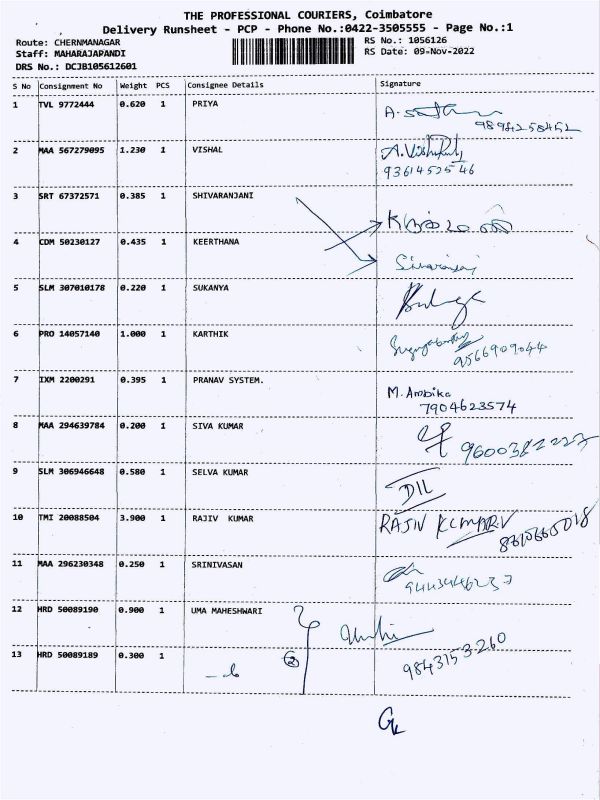 THE PROFESSIONAL COURIERS, Coimbatore
Delivery Runsheet - PCP - Phone No.:0422-3505555 - Page No.:1
Route: CHERNMANAGAR
Staff: MAHARAJAPANDI
DRS No.: DCJB105612601
RS No.: 1056126
RS Date: 09-Nov-2022
S No Consignment No Weight PCS Consignee Details Signature
1 TVL 9772444 0.620 1 PRIYA
2 MAA 567279095 1.230 1 VISHAL
9361452546
3 SRT 67372571 0.385 1 SHIVARANJANI
4 CDM 50230127 0.435 1 KEERTHANA
5 SLM 307010178 0.220 1 SUKANYA
6 PRO 14057140 1.000 1 KARTHIK
9566909044
7 IXM 2200291 0.395 1 PRANAV SYSTEM.
M. Ambika
7904623574
8 MAA 294639784 0.200 1 SIVA KUMAR
9600382227
9 SLM 306946648 0.580 1 SELVA KUMAR
DIL
10 TMI 20088504 3.900 1 RAJIV KUMAR
RAJIV KUMAR.V
11 MAA 296230348 0.250 1 SRINIVASAN
12 HRD 50089190 0.900 1 UMA MAHESHWARI
13 HRD 50089189 0.300 1
9843153260